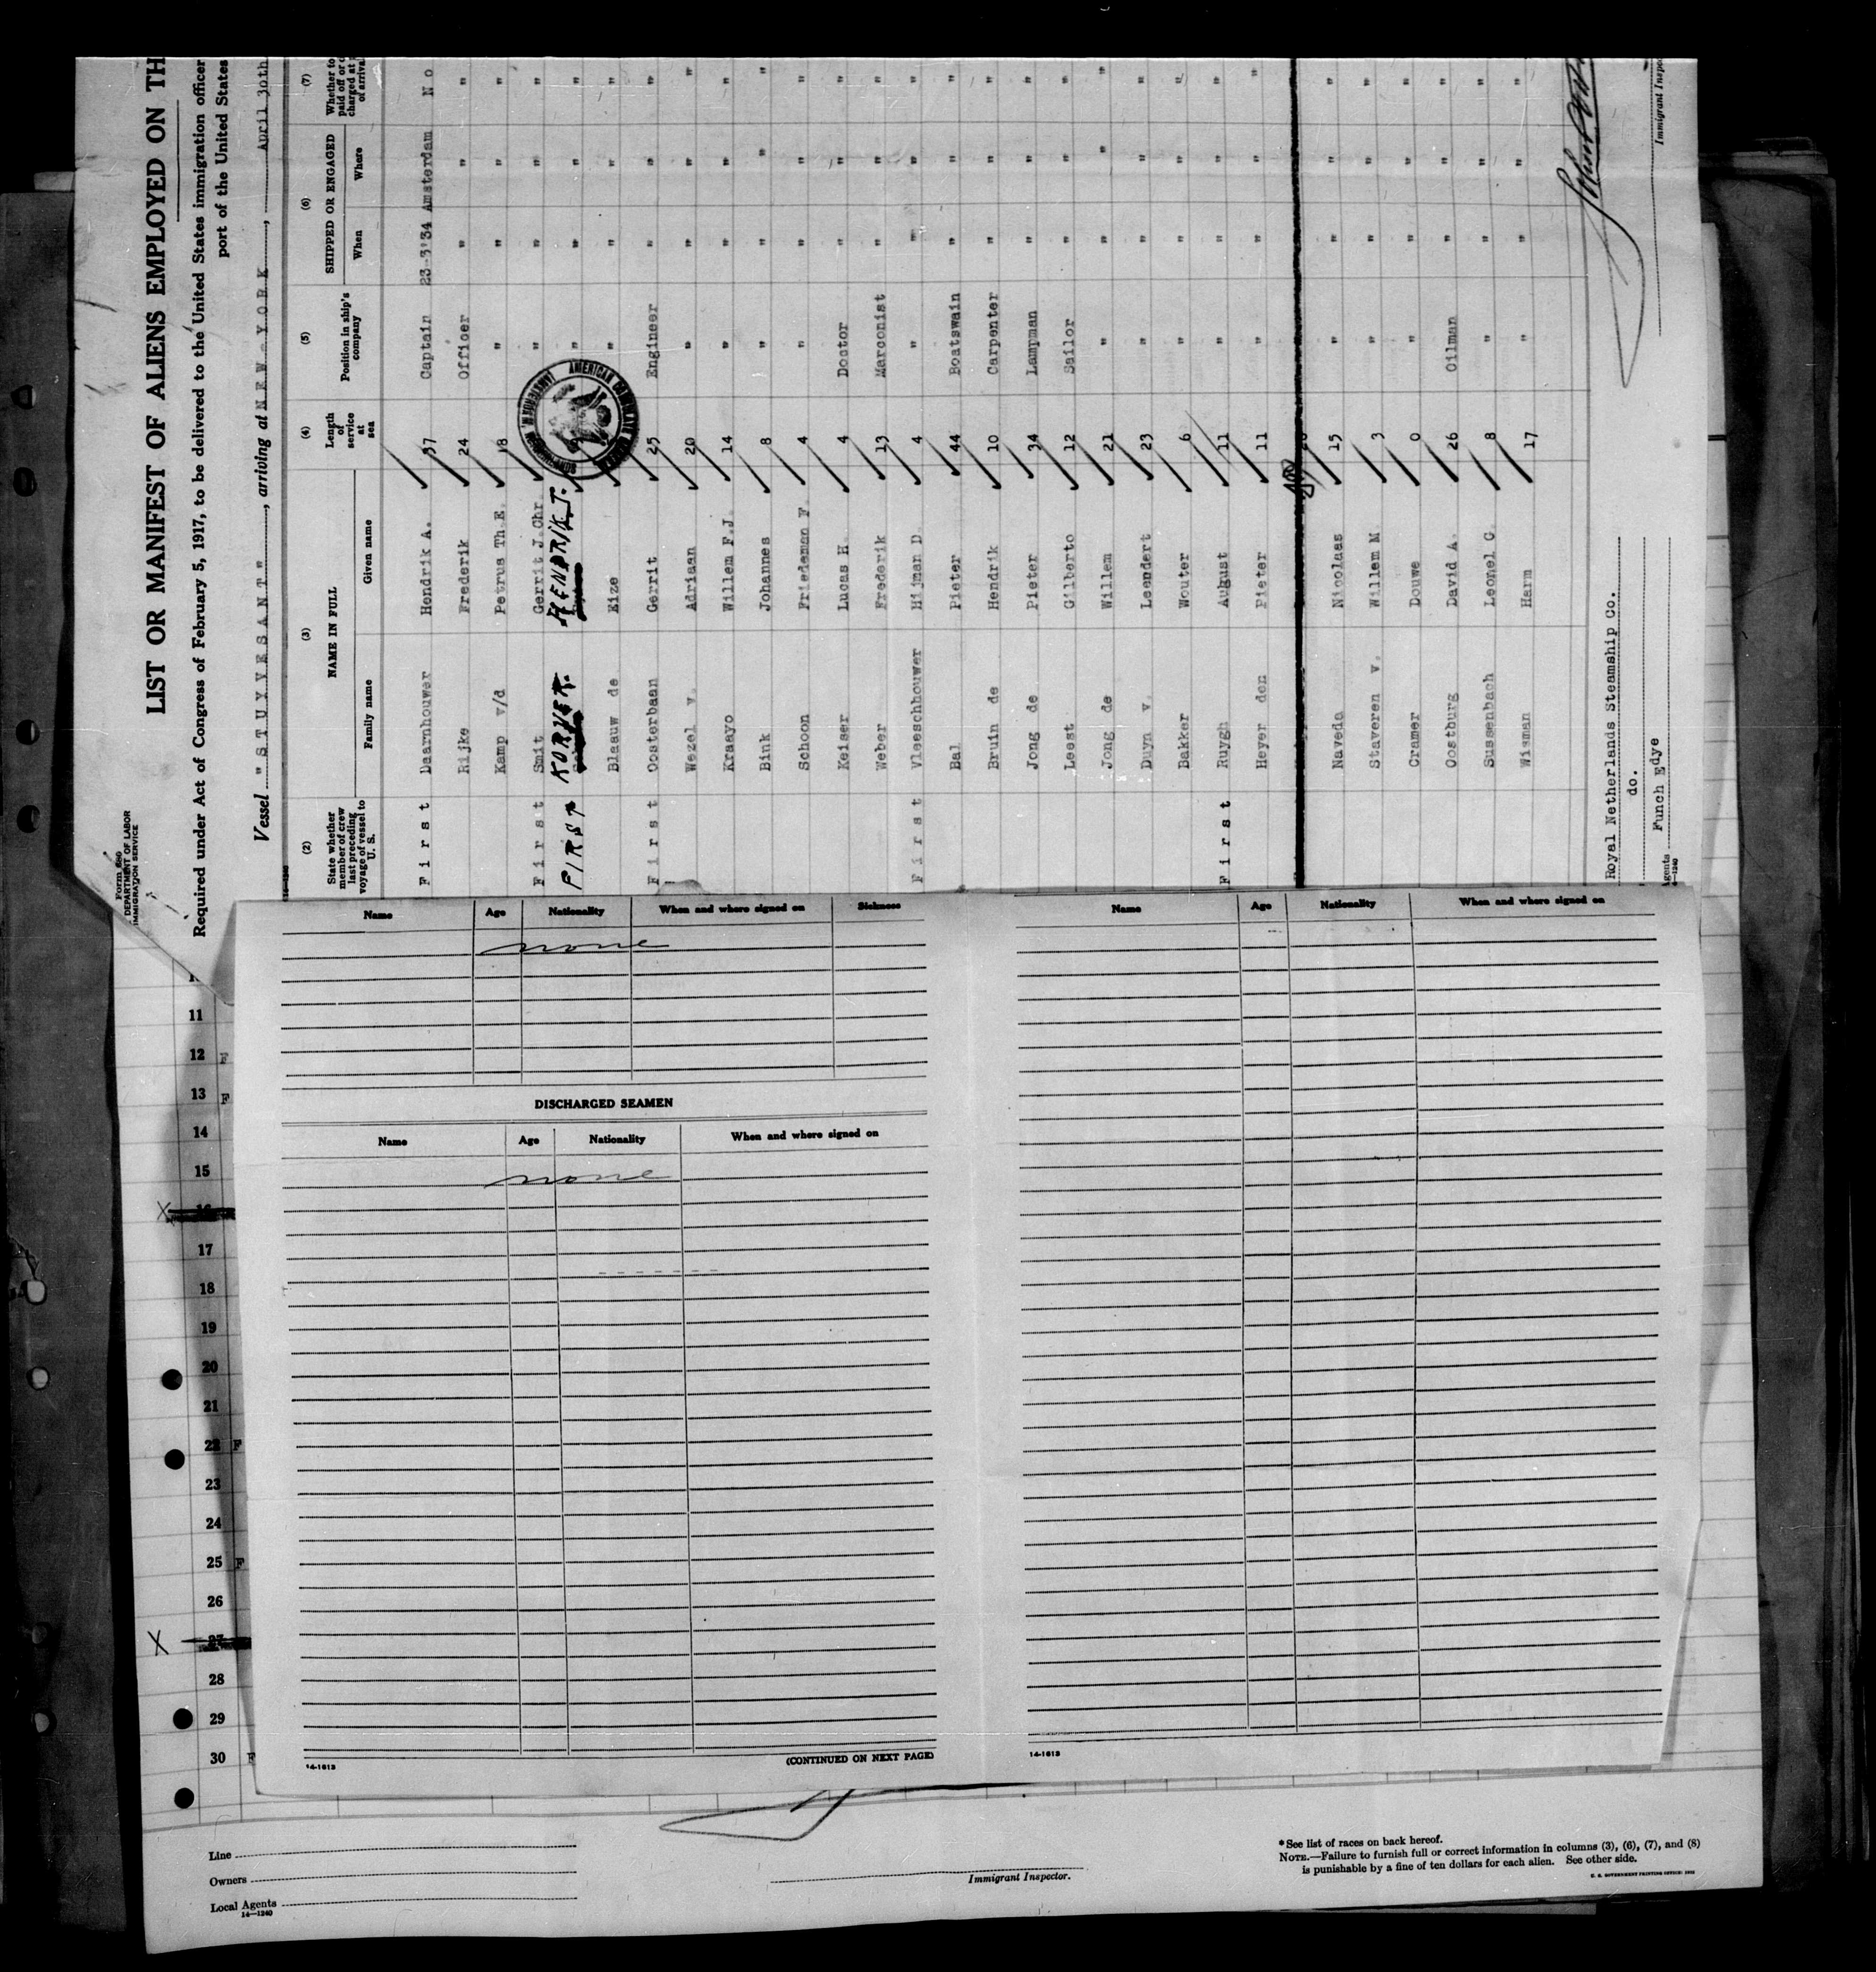 Form 680
DEPARTMENT OF LABOR
IMMIGRATION SERVICE
LIST OR MANIFEST OF ALIENS EMPLOYED ON TH
Required under Act of Congress of February 5, 1917, to be delivered to the United States immigration officer
port of the United States
Vessel "STUYVESANT", arriving at NEW-YORK, April 30th
(2) (3) (4) (5) (6) (7)
State whether member of crew last preceding voyage of vessel to U. S.
NAME IN FULL
Family name Given name
Length of service at sea
Position in ship's company
SHIPPED OR ENGAGED
When Where
Whether to paid off or charged at of arrival
First Daarnhouwer Hendrik A. 37 Captain 23-3'34 Amsterdam No
Rijke Frederik 24 Officer " " "
Kamp v/d Petrus Th.E. 18 " " " "
First Smit Gerrit J.Chr. " " " "
FIRST KORVER. HENDRIK.T. " " " "
Blaauw de Eize " " " "
First Oosterbaan Gerrit 25 Engineer " " "
Wezel v. Adriaan 20 " " " "
Kraayo Willem F.J. 14 " " " "
Bink Johannes 8 " " " "
Schoon Friedeman F. 4 " " " "
Keiser Lucas H. 4 Doctor " " "
Weber Frederik 13 Marconist " " "
First Vleeschhouwer Hijman D. 4 " " " "
Bal Pieter 44 Boatswain " " "
Bruin de Hendrik 10 Carpenter " " "
Jong de Pieter 34 Lampman " " "
Leest Gilberto 12 Sailor " " "
Jong de Willem 21 " " " "
Duyn v. Leendert 23 " " " "
Bakker Wouter 6 " " " "
First Ruygh August 11 " " " "
Heyer den Pieter 11 " " " "
Naveda Nicolaas 15 " " " "
Staveren v. Willem M. 3 " " " "
Cramer Douwe 0 " " " "
Oostburg David A. 26 Oilman " " "
Sussenbach Leonel G. 8 " " " "
Wisman Harm 17 " " " "
AMERICAN CONSULATE GENERAL
Royal Netherlands Steamship Co.
do.
Agents Funch Edye
Immigrant Inspec
Name Age Nationality When and where signed on Sickness
none
DISCHARGED SEAMEN
Name Age Nationality When and where signed on
none
14-1613
(CONTINUED ON NEXT PAGE)
Name Age Nationality When and where signed on
14-1613
11
12
13 F
14
15
X 16
17
18
19
20
21
22 F
23
24
25 F
26
X 27
28
29
30 F
Line
Owners
Local Agents
14-1240
Immigrant Inspector.
* See list of races on back hereof.
NOTE.—Failure to furnish full or correct information in columns (3), (6), (7), and (8)
is punishable by a fine of ten dollars for each alien. See other side.
U. S. GOVERNMENT PRINTING OFFICE